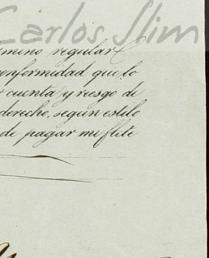 Carlos Slim
mino regular
onformidad que lo
cuenta y riesgo de
derecho, segun estilo
de pagar mi flete